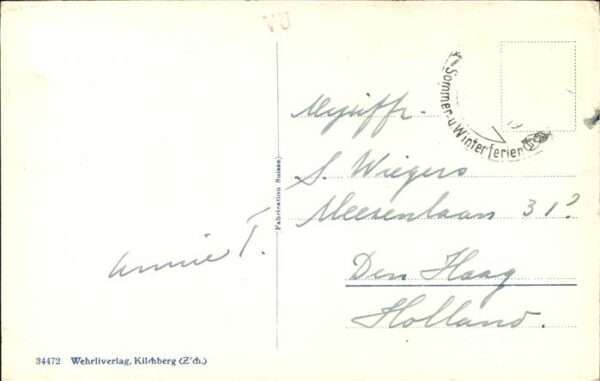 Sommer-u Winterferien
Mejuffr.
S. Wiegers
Meezenlaan 31?
Den Haag
Holland.
Annie T.
Fabrication Suisse
34472 Wehrliverlag, Kilchberg (Z'ch.)